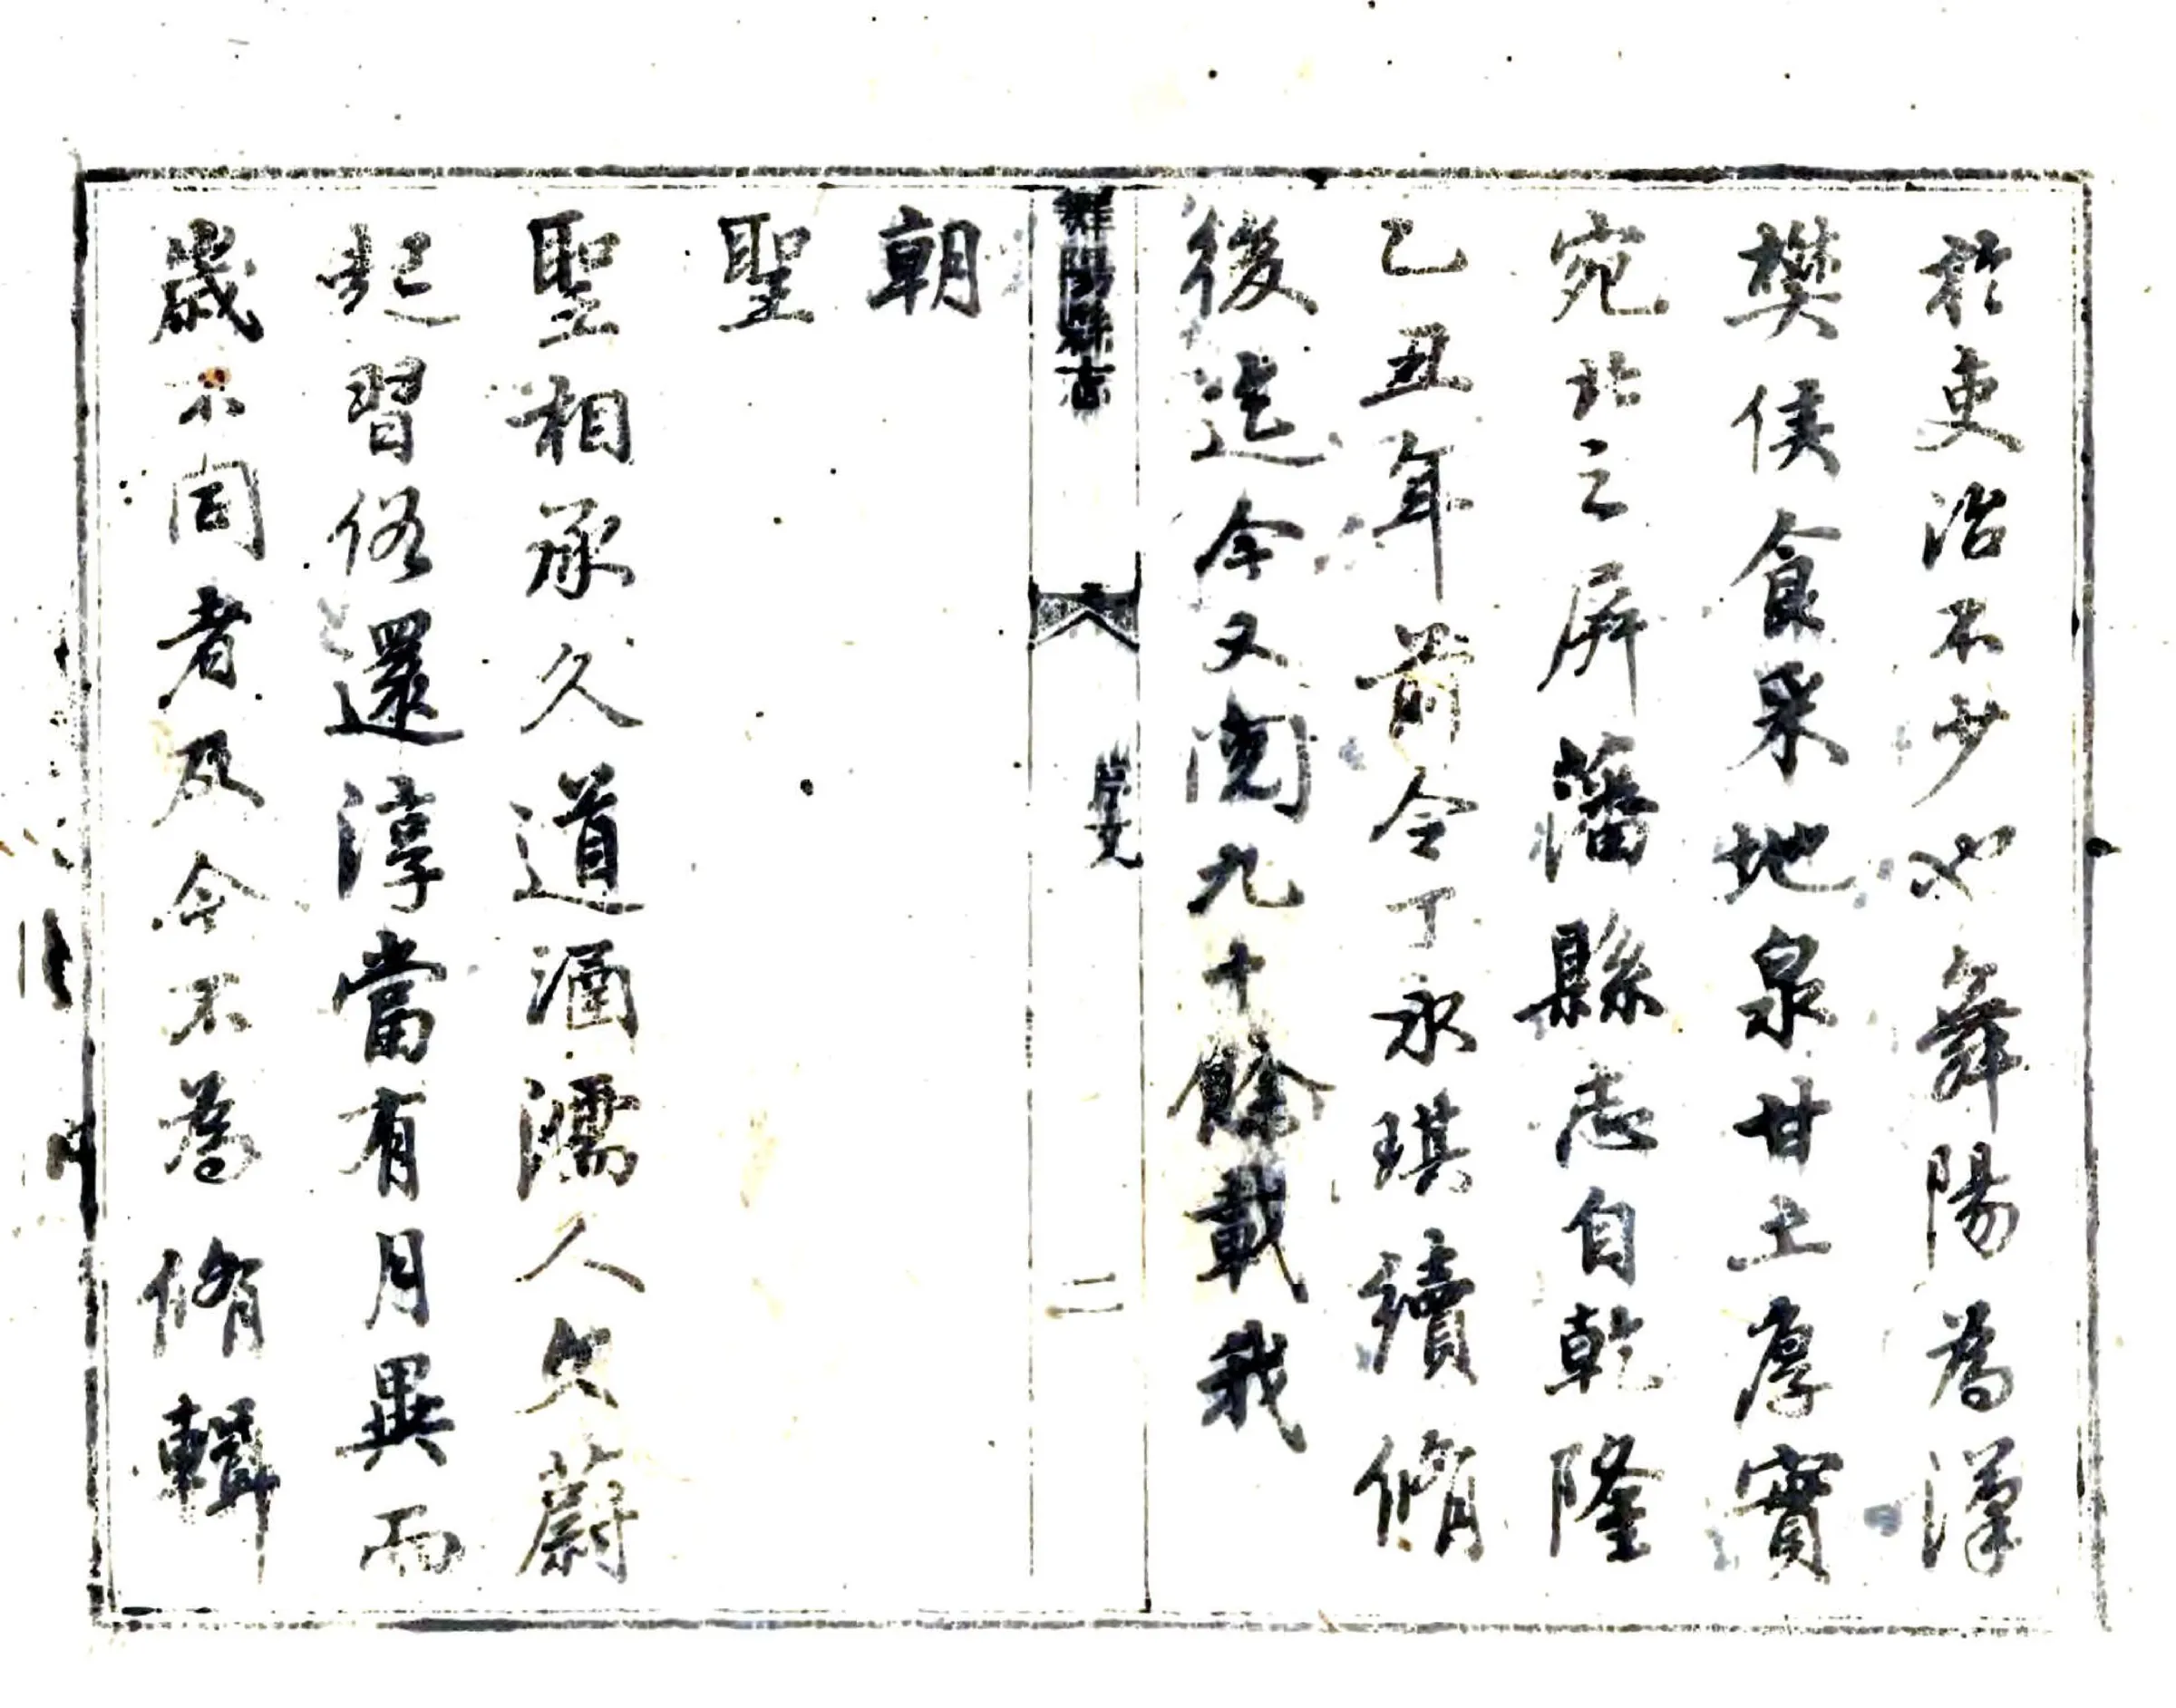 於吏治不少也舞陽為漢
樊侯食采地泉甘土厚實
宛北之屏藩縣志自乾隆
乙丑年前令丁永琪續脩
後迄今又閱九十餘載我
舞陽縣志
序文
二
朝
聖
聖相承久道涵濡人文蔚
起習俗還淳當有月異而
歲不同者及今不為脩輯